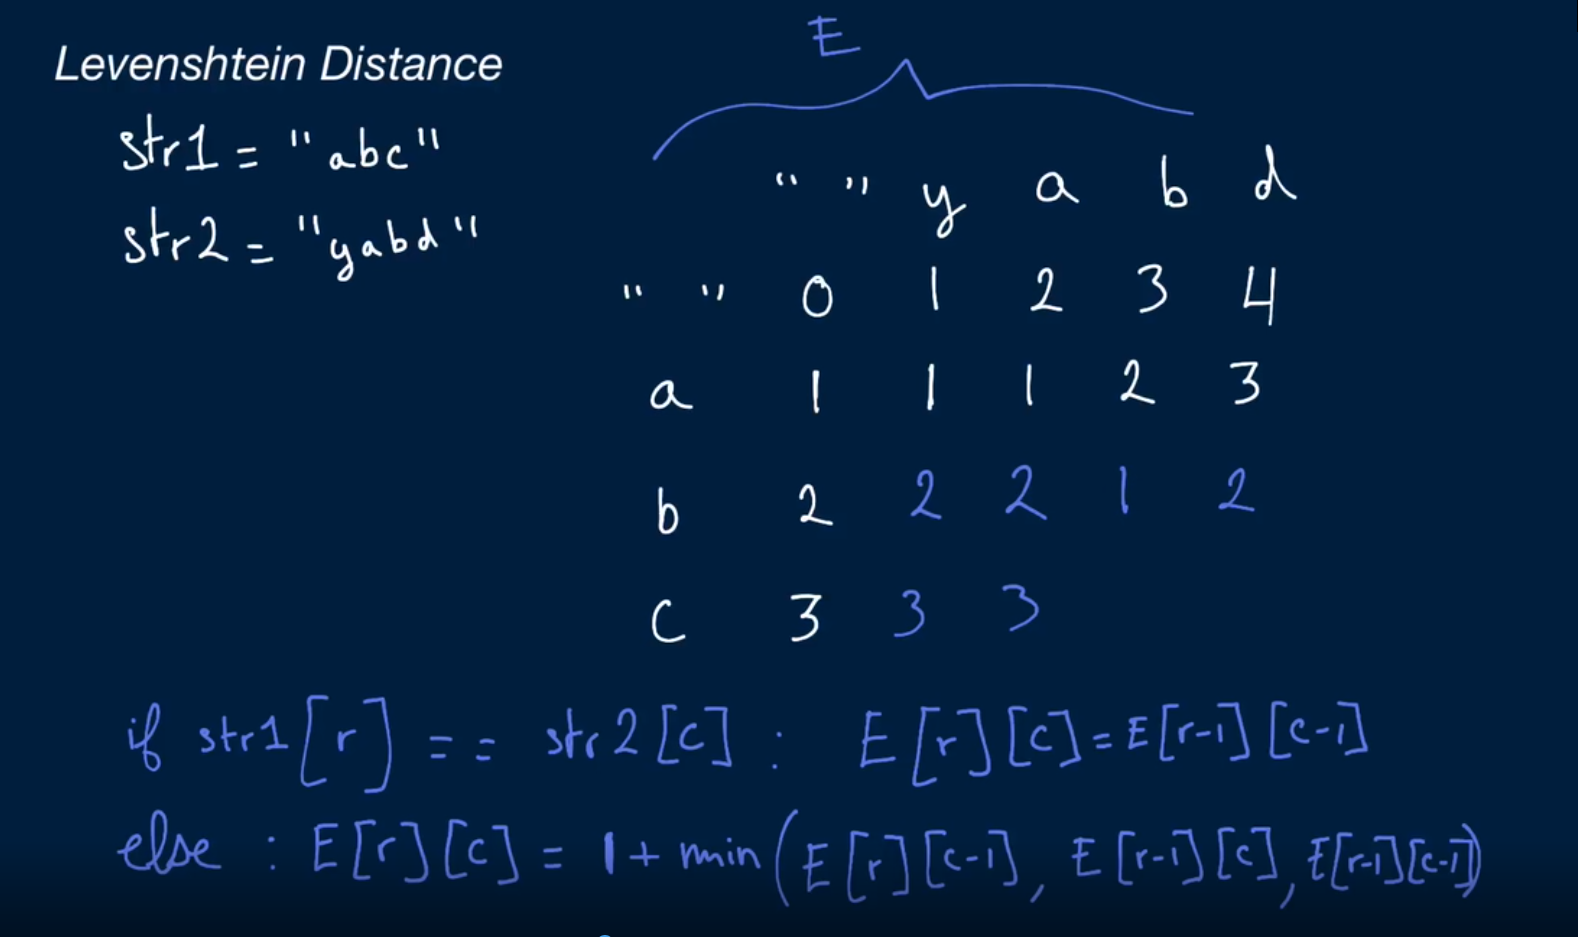 Levenshtein Distance
str1 = "abc"
str2 = "yabd"
E
" " y a b d
" " 0 1 2 3 4
a 1 1 1 2 3
b 2 2 2 1 2
c 3 3 3
if str1[r] == str2[c] : E[r][c] = E[r-1][c-1]
else : E[r][c] = 1 + min(E[r][c-1], E[r-1][c], E[r-1][c-1])